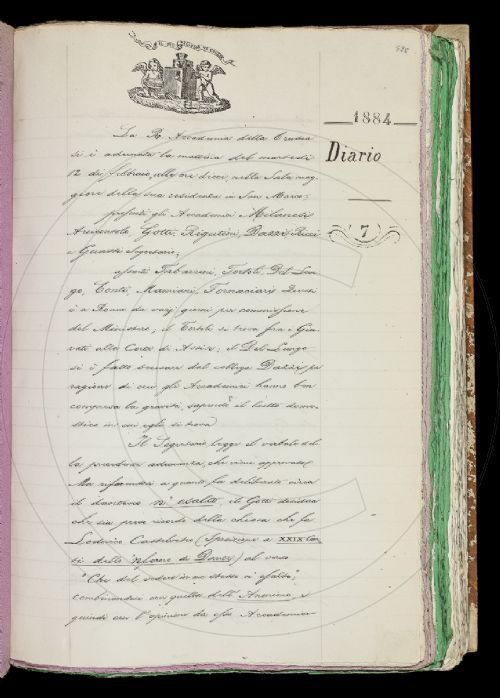 528
1884
Diario
7
La R. Accademia della Crusca
si è adunata la mattina del martedì
12 di febbraio, alle ore dieci, nella Sala mag-
giore della sua residenza in San Marco;
presenti gli Accademici Milanesi
Gotti, Rigutini, Dazzi, Ricci
e Guasti Segretario;
assenti Tabarrini, Tortoli, Del Lun-
go, Conti, Mamiani, Fornaciari.
è a Roma da varj giorni per commissione
del Ministero; il Tortoli si trova fra i Giu-
rati alla Corte di Assise; il Del Lungo
si è fatto scusare dal collega Dazzi per
ragione di cui gli Accademici hanno ben
compreso la gravità, sapendo il lutto dome-
stico in cui egli si trova.
Il Segretario legge il verbale del-
la precedente adunanza, che viene approvato.
Ma rifacendosi a quanto fu deliberato circa
il dantesco n'esalto, il Gotti desidera
che sia preso ricordo della chiosa che fa
Lodovico Castelvetro (Sposizione a XXIX Can-
ti dell'Inferno di Dante) al verso
"Che del vedere in me stesso n'esalto";
combinandosi con quella dell'Anonimo, e
quindi con l'opinione da essi Accademici